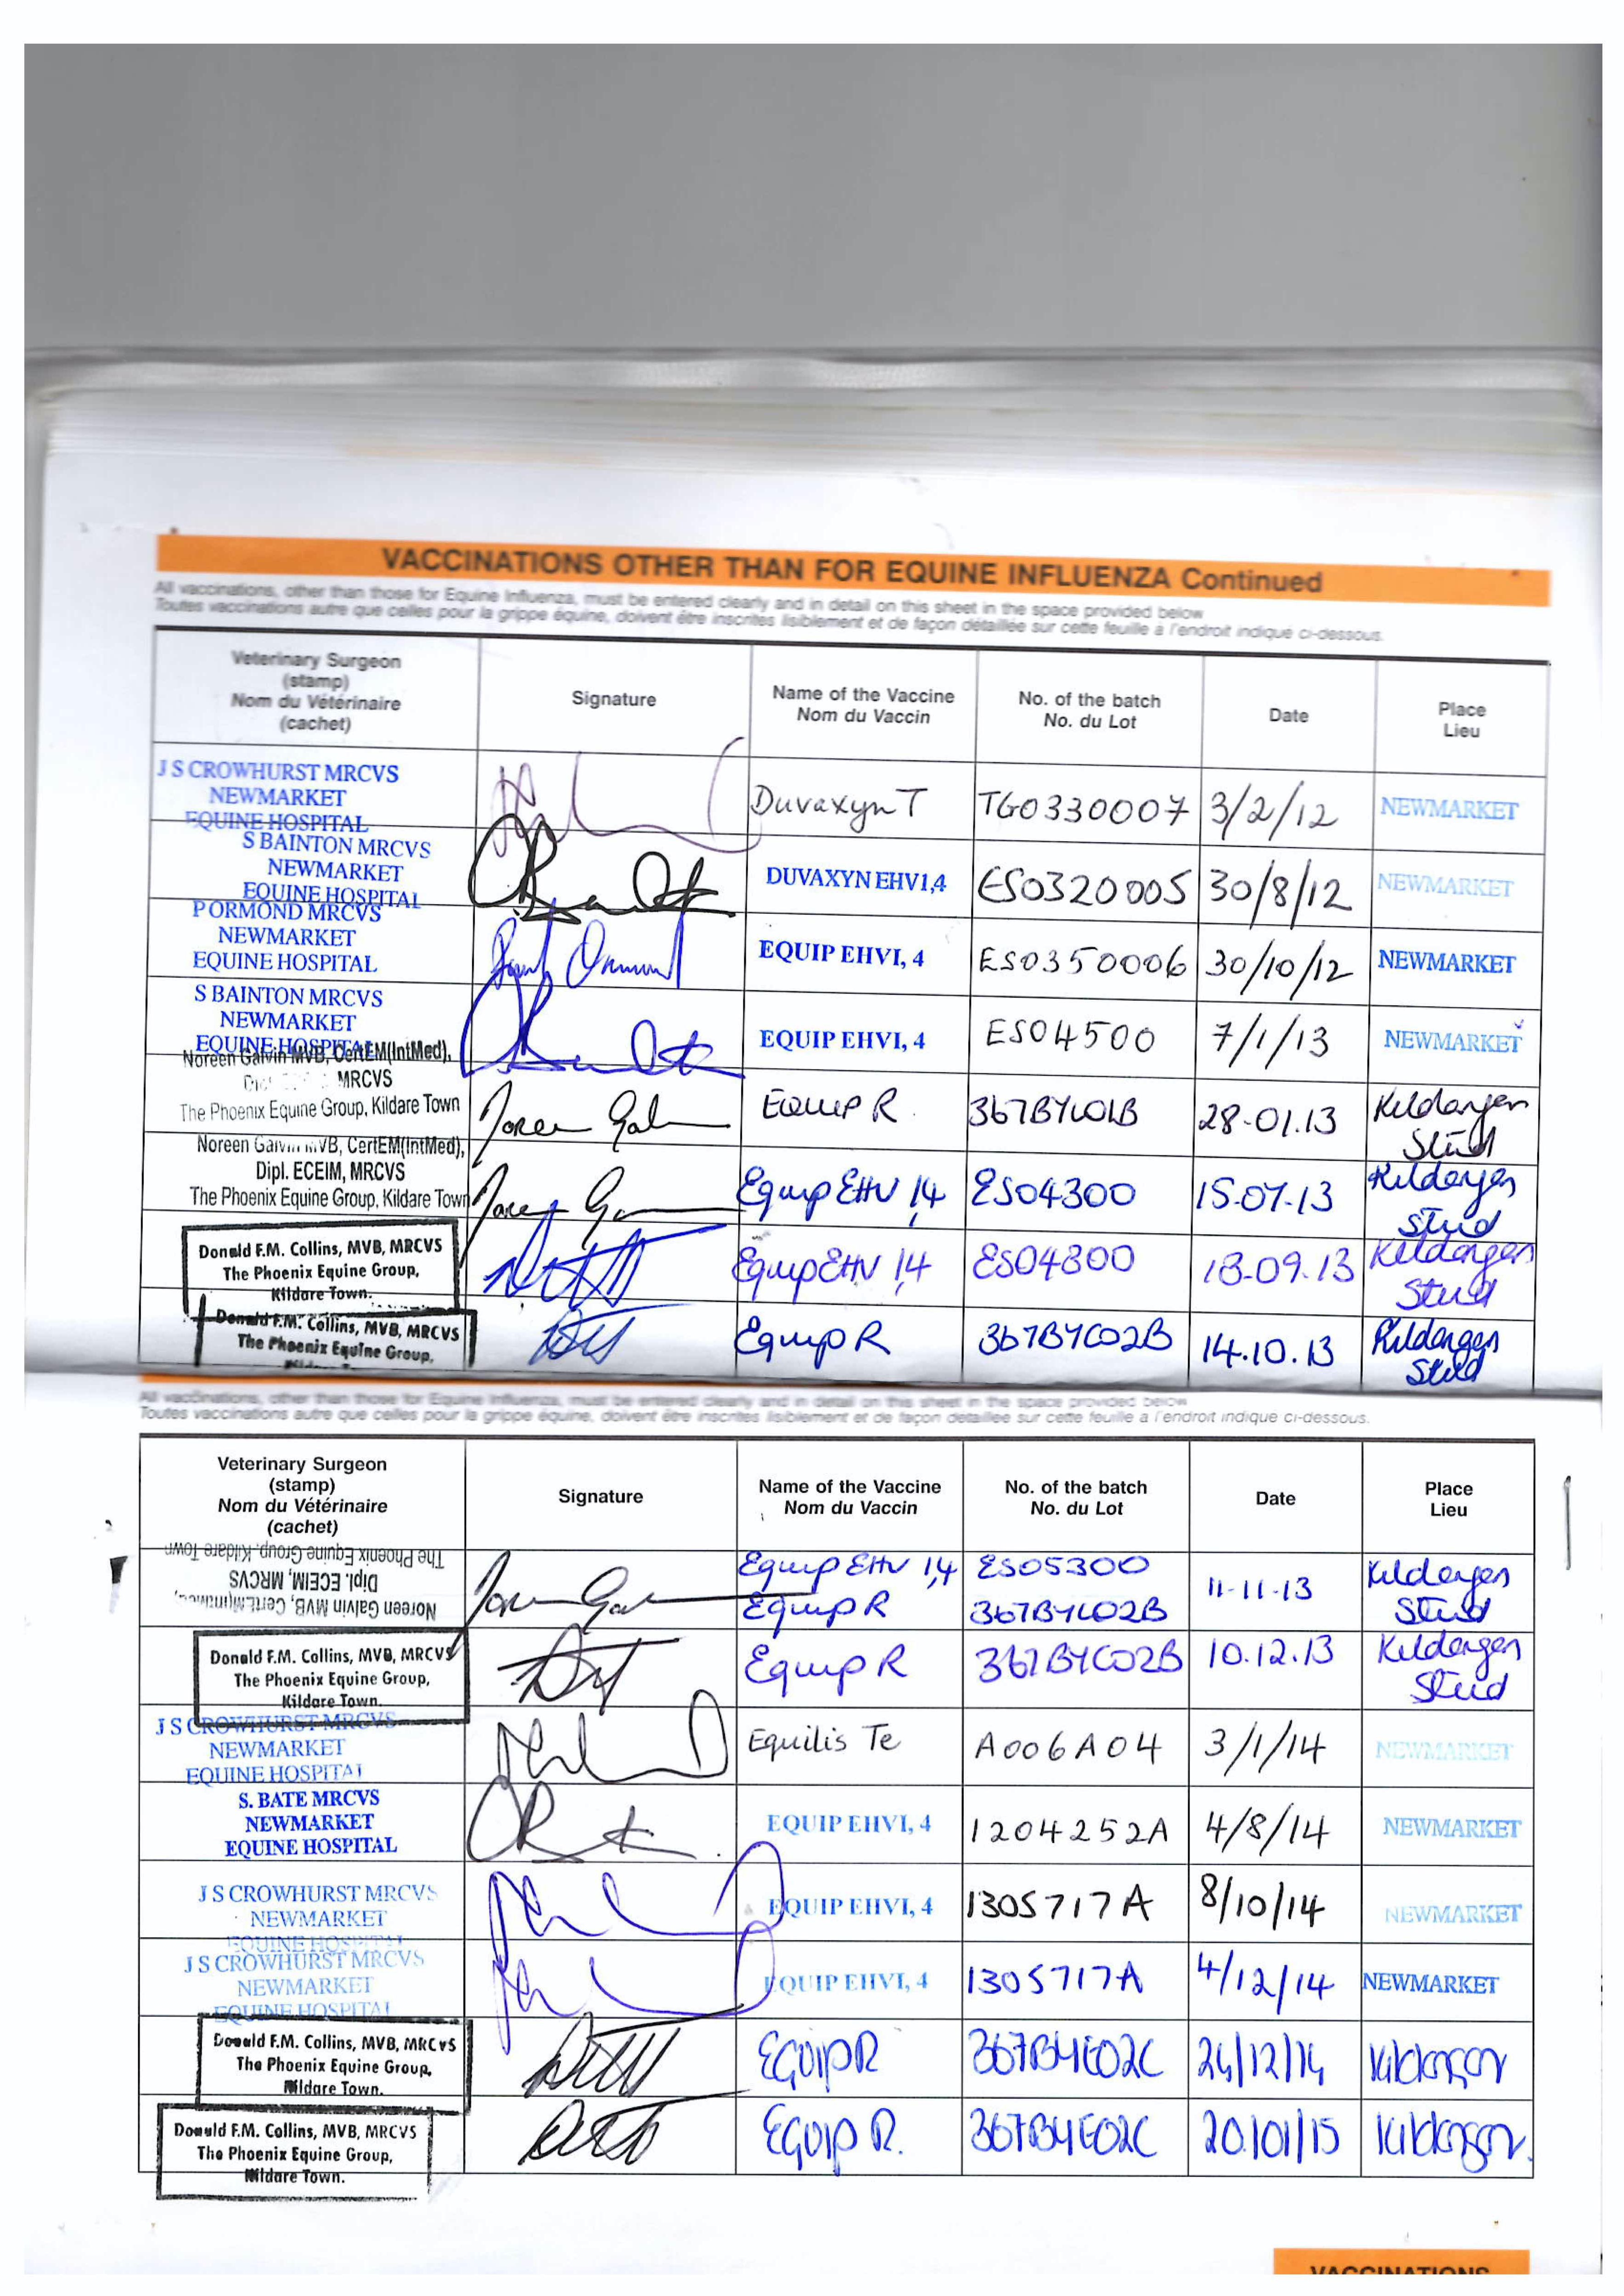 VACCINATIONS OTHER THAN FOR EQUINE INFLUENZA Continued
All vaccinations, other than those for Equine Influenza, must be entered clearly and in detail on this sheet in the space provided below
Toutes vaccinations autre que celles pour la grippe équine, doivent être inscrites lisiblement et de façon détaillée sur cette feuille a l'endroit indiqué ci-dessous.
Veterinary Surgeon
(stamp)
Nom du Vétérinaire
(cachet)
Signature
Name of the Vaccine
Nom du Vaccin
No. of the batch
No. du Lot
Date
Place
Lieu
J S CROWHURST MRCVS
NEWMARKET
EQUINE HOSPITAL
Duvaxyn T
TG0330007
3/2/12
NEWMARKET
S BAINTON MRCVS
NEWMARKET
EQUINE HOSPITAL
DUVAXYN EHV1,4
ES0320005
30/8/12
NEWMARKET
P ORMOND MRCVS
NEWMARKET
EQUINE HOSPITAL
EQUIP EHVI, 4
ES0350006
30/10/12
NEWMARKET
S BAINTON MRCVS
NEWMARKET
EQUINE HOSPITAL
EQUIP EHVI, 4
ES04500
7/1/13
NEWMARKET
Noreen Galvin MVB, CertEM(IntMed),
MRCVS
The Phoenix Equine Group, Kildare Town
Equip R
28-01.13
Kildangan
Stud
Noreen Galvin MVB, CertEM(IntMed),
Dipl. ECEIM, MRCVS
The Phoenix Equine Group, Kildare Town
Equip EHV 1,4
ES04300
15-07-13
Kildangan
Stud
Donald F.M. Collins, MVB, MRCVS
The Phoenix Equine Group,
Kildare Town.
Equip EHV 1,4
ES04800
18-09.13
Kildangan
Stud
Donald F.M. Collins, MVB, MRCVS
The Phoenix Equine Group,
Equip R
367BYC02B
14.10.13
Kildangan
Stud
All vaccinations, other than those for Equine Influenza, must be entered clearly and in detail on this sheet in the space provided below
Toutes vaccinations autre que celles pour la grippe équine, doivent être inscrites lisiblement et de façon detaillee sur cette feuille a l'endroit indique ci-dessous.
Veterinary Surgeon
(stamp)
Nom du Vétérinaire
(cachet)
Signature
Name of the Vaccine
Nom du Vaccin
No. of the batch
No. du Lot
Date
Place
Lieu
Noreen Galvin MVB,
Dipl. ECEIM, MRCVS
The Phoenix Equine Group, Kildare Town
Equip EHV 1,4
ES05300
Equip R
367BYC02B
11-11-13
Kildangan
Stud
Donald F.M. Collins, MVB, MRCVS
The Phoenix Equine Group,
Kildare Town.
Equip R
367BYC02B
10.12.13
Kildangan
Stud
J S CROWHURST MRCVS
NEWMARKET
EQUINE HOSPITAL
Equilis Te
A006A04
3/1/14
NEWMARKET
S. BATE MRCVS
NEWMARKET
EQUINE HOSPITAL
EQUIP EHVI, 4
1204252A
4/8/14
NEWMARKET
J S CROWHURST MRCVS
NEWMARKET
EQUINE HOSPITAL
EQUIP EHVI, 4
1305717A
8/10/14
NEWMARKET
J S CROWHURST MRCVS
NEWMARKET
EQUINE HOSPITAL
EQUIP EHVI, 4
1305717A
4/12/14
NEWMARKET
Donald F.M. Collins, MVB, MRCVS
The Phoenix Equine Group,
Kildare Town.
EQUIP R
367BYE02C
24/12/14
Kildangan
Donald F.M. Collins, MVB, MRCVS
The Phoenix Equine Group,
Kildare Town.
EQUIP R.
367BYE02C
20/01/15
Kildangan.
VACCINATIONS